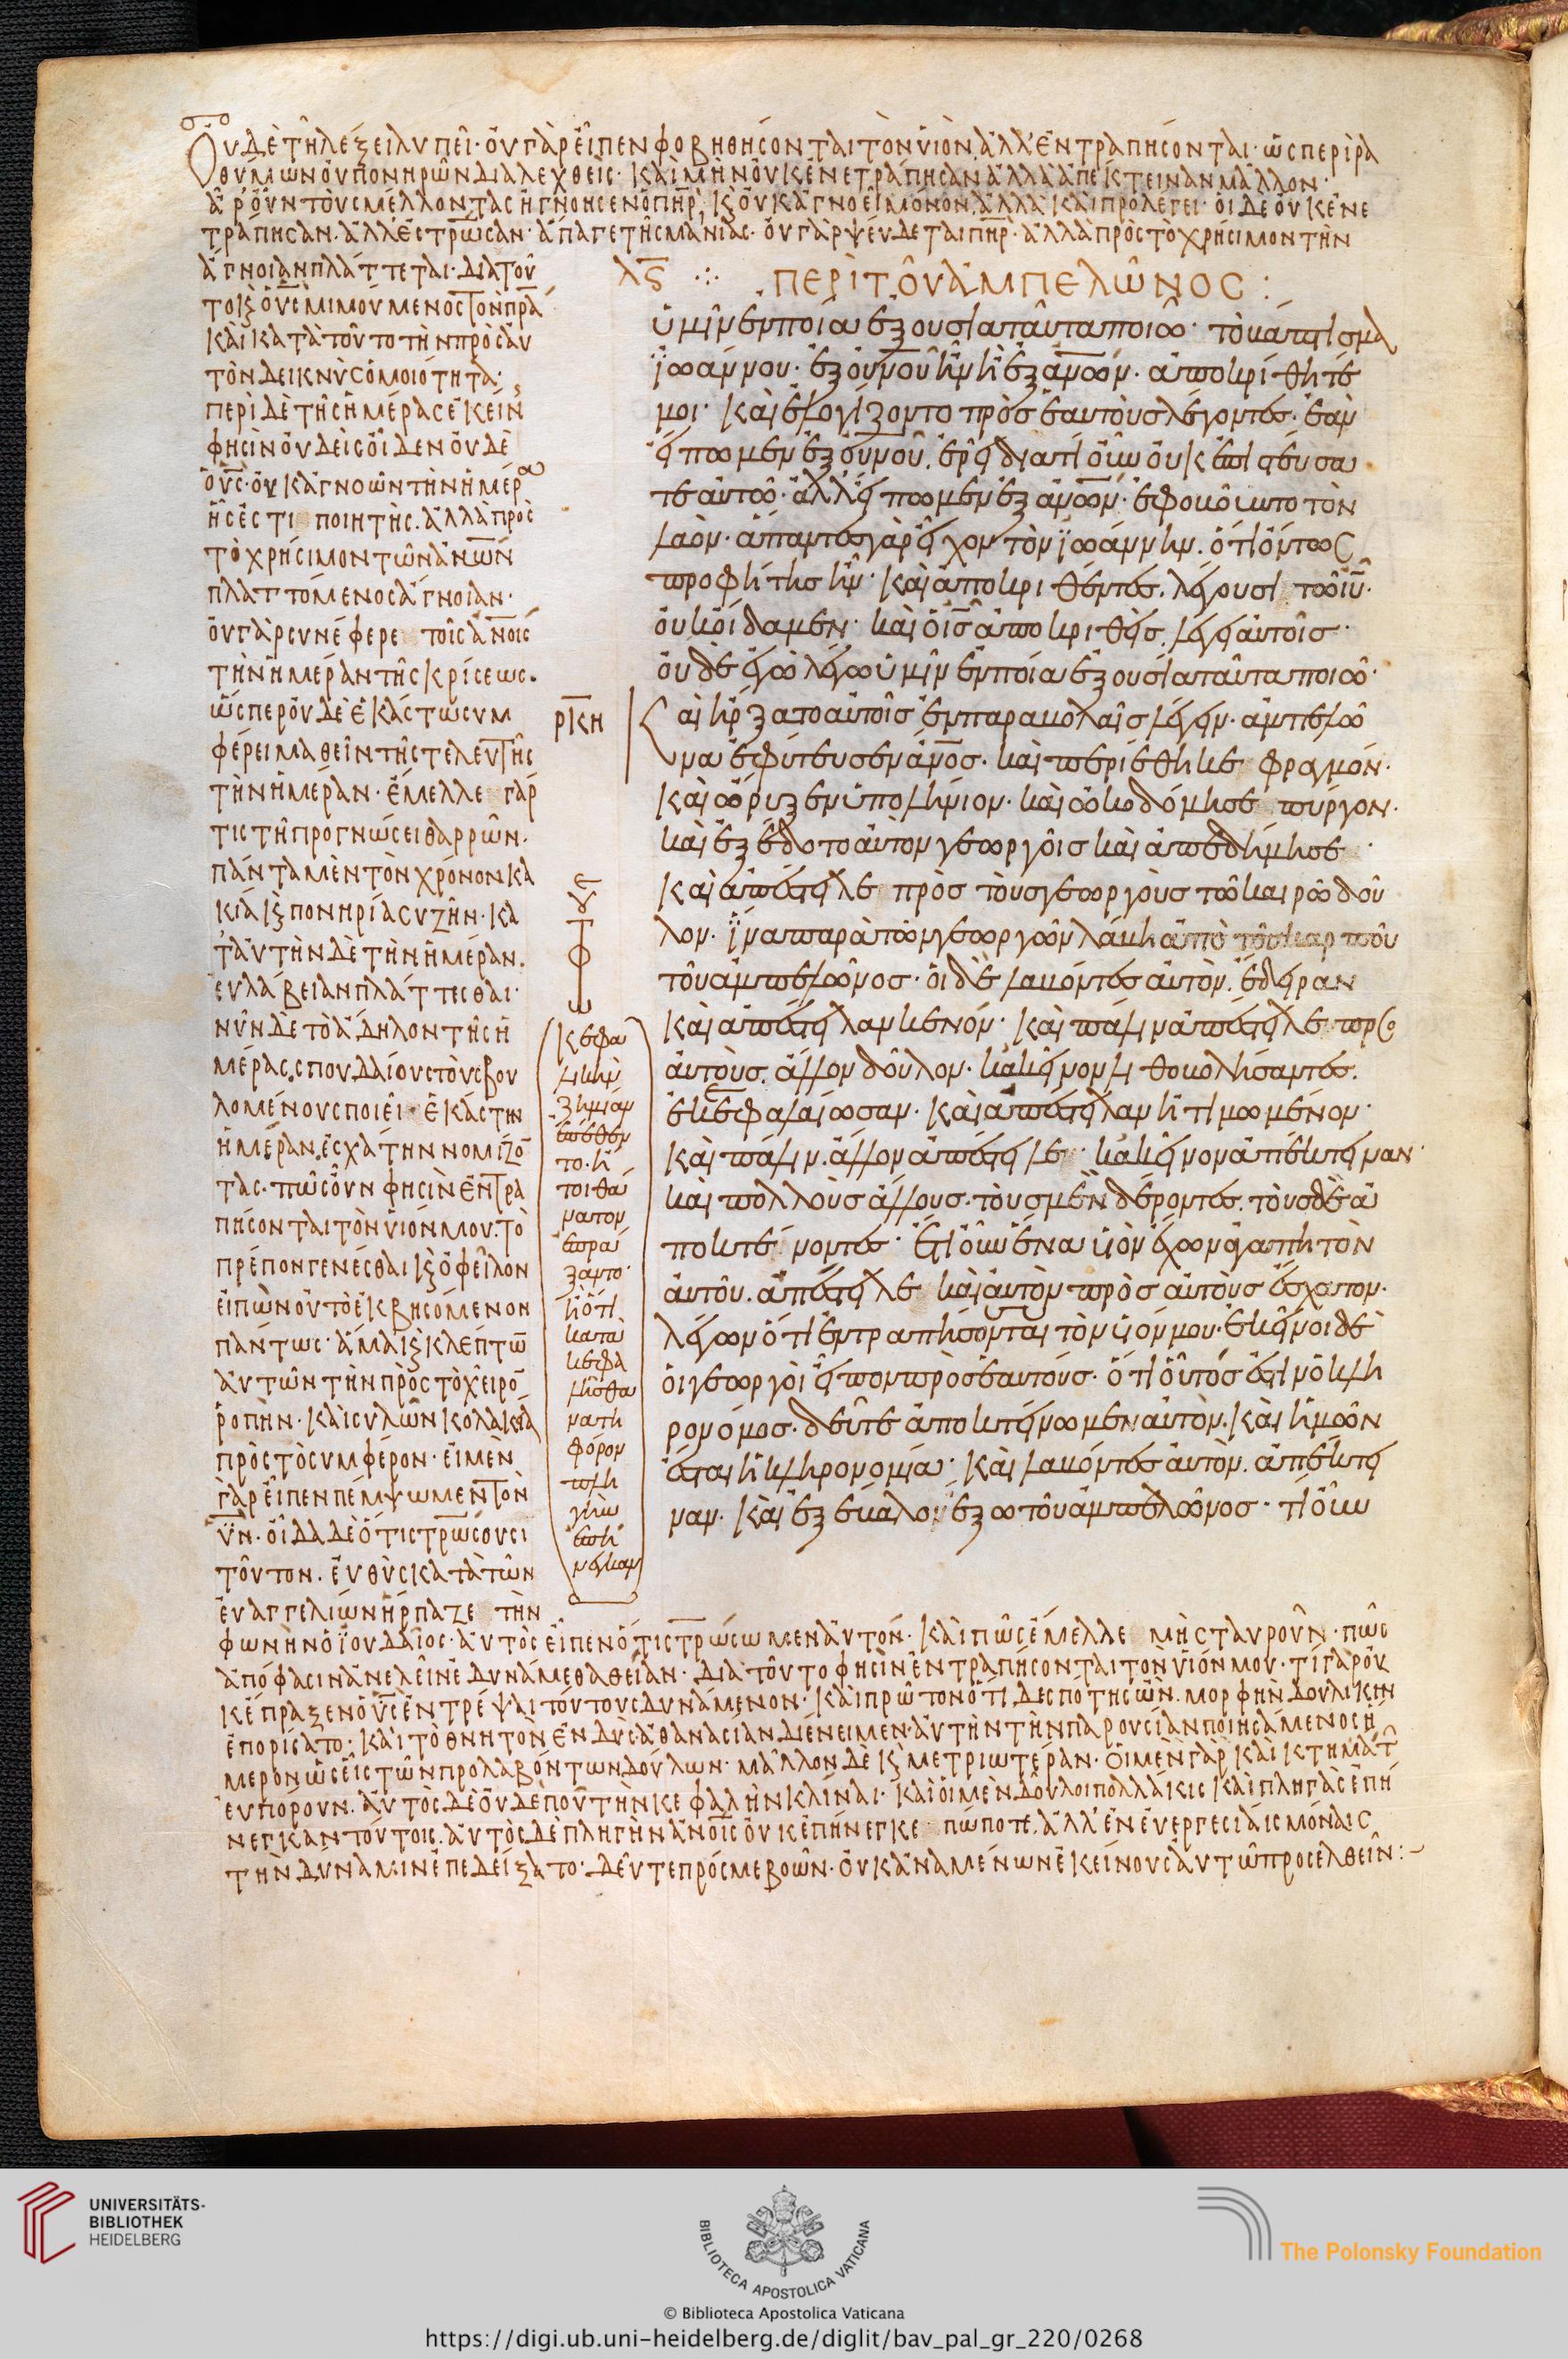 Οὐδὲ τῇ λέξει λυπεῖ· οὐ γὰρ εἶπεν φοβηθήσονται τὸν υἱὸν, ἀλλ' ἐντραπήσονται· ὥσπερ ἱρα
θύμων οὐ πονηρῶν διαλεχθεὶς· καὶ μὴν οὐκ ἐνετράπησαν ἀλλὰ ἀπέκτειναν μᾶλλον·
ἆρ' οὖν τοὺς μέλλοντας ἠγνόησεν ὁ π̅η̅ρ̅, κ̀ οὐκ ἀγνοεῖ μόνον, ἀλλὰ καὶ προλέγει· οἱ δὲ οὐκ ἐνε
τράπησαν· ἀλλ' ἐσ̅τ̅ρ̅ωσαν· ἄπαγε τῆς μανίας· οὐ γὰρ ψεύδεται π̅η̅ρ̅· ἀλλὰ πρὸς τὸ χρήσιμον τὴν
ἄγνοιαν πλάττεται· διὰ τοῦ
το κ̀ ὁ υ̅ς̅ μιμούμενος τὸν π̅ρ̅α̅
καὶ κατὰ τοῦτο τὴν πρὸς αὐ
τὸν δεικνὺς ὁμοιότητα·
περὶ δὲ τῆς ἡμέρας ἐκείν
φησὶν οὐδεὶς οἶδεν οὐδὲ
ὁ υ̅ς̅· οὐκ ἀγνοῶν τὴν ἡμέρ
ἧς ἐστι ποιητής. ἀλλὰ πρὸς
τὸ χρήσιμον τῶν α̅ν̅ω̅ν̅
πλαττόμενος ἄγνοιαν·
οὐ γὰρ συνέφερε τοῖς α̅ν̅ο̅ι̅ς̅
τὴν ἡμέραν τῆς κρίσεως.
ὥσπερ οὐδὲ ἑκάστω συμ
φέρει μαθεῖν τῆς τελευτῆς
τὴν ἡμέραν· ἔμελλε γάρ
τις τῇ προγνώσει θαρρῶν·
πάντα μὲν τὸν χρόνον κα
κία κ̀ πονηρία συζῆν· κα
τ' αὐτὴν δὲ τὴν ἡμέραν.
εὐλάβειαν πλάττεσθαι·
νῦν δὲ τὸ ἄδηλον τῆς ἡ
μέρας, σπουδαίους τοὺς βου
λομένους ποιεῖ· ἑκάστην
ἡμέραν, ἐσχάτην νομίζο̅
τας· πῶς οὖν φησὶν ἐντρα
πήσονται τὸν υἱόν μου· τὸ
πρέπον γενέσθαι κ̀ ὀφεῖλον
εἰπὼν οὐ τὸ ἐκβησόμενον
πάντως· ἅμα κ̀ κλέπτω̅
αὐτῶν τὴν πρὸς τὸ χεῖρο̅
ῥοπὴν· καὶ συλῶν κολακία
πρὸς τὸ συμφέρον· εἰ μὲν
γὰρ εἶπεν πέμψωμεν τὸν
υ̅ν̅· οἶδα δὲ ὅτι σ̅τ̅ρ̅ώσουσι
τοῦτον. εὐθὺς κατὰ τῶν
εὐαγγελίων ἥρπαζε τὴν
φωνὴν ὁ ἰουδαῖος· αὐτὸς εἶπεν ὅτι σ̅τ̅ρ̅ώσωμεν αὐτόν· καὶ πῶς ἔμελλε μὴ σταυροῦν· πῶς
ἀπόφασιν ἀνελεῖν ἐδυνάμεθα θείαν· διὰ τοῦτο φησὶν ἐντραπήσονται τὸν υἱόν μου· τί γὰρ οὐ
κ ἔπραξεν ὁ υ̅ς̅ ἐντρέψαι τούτους δυνάμενον· καὶ πρῶτον ὅτι δεσπότης ὢν. μορφὴν δουλικὴν
ἐπορίσατο· καὶ τὸ θνητὸν ἐνδὺς, ἀθανασίαν διένειμεν· αὐτὴν τὴν παρουσίαν ποιησάμενος ἡ
μερον ὡς εἷς τῶν προλαβόντων δούλων· μᾶλλον δὲ κ̀ μετριωτέραν· οἱ μὲν γὰρ καὶ κτημάτ
εὐπόρουν. αὐτὸς δὲ οὐδὲ ποῦ τὴν κεφαλὴν κλίναι· καὶ οἱ μὲν δοῦλοι πολλάκις καὶ πληγὰς ἐπή
νεγκαν τούτοις. αὐτὸς δὲ πληγὴν α̅ν̅ο̅ι̅ς̅ οὐκ ἐπήνεγκε πώποτε, ἀλλ' ἐν εὐεργεσίαις μόναις
τὴν δύναμιν ἐπεδείξατο· δεῦτε πρός με βοῶν· οὐκ ἀναμένων ἐκείνους αὐτῶ προσελθεῖν:
λ̅ς̅ ·:· ΠΕΡῚ ΤΟΥ͂ ἈΜΠΕΛΩ͂ΝΟΣ :
ὑμῖν ἐν ποία ἐξουσία ταῦτα ποιῶ· τὸ βάπτισμα
ἰωάννου· ἐξ ο̅υ̅ν̅ο̅υ̅ ἦν ἢ ἐξ α̅ν̅ω̅ν̅· ἀποκρίθητέ
μοι· καὶ ἐλογίζοντο πρὸς ἑαυτοὺς λέγοντες· ἐὰν
είπωμεν ἐξ ο̅υ̅ν̅ο̅υ̅, ἐρεῖ διατί οὖν οὐκ ἐπιστεύσα
τε αὐτῶ· ἀλλ' εἴπωμεν ἐξ α̅ν̅ω̅ν̅· ἐφοβοῦντο τὸν
λαὸν· ἅπαντες γὰρ εἶχον τὸν ἰωάννην. ὅτι ὄντως
προφήτης ἦν· καὶ ἀποκριθέντες. λέγουσι τῶ ι̅υ̅·
οὐκ οἴδαμεν· καὶ ὁ ι̅ς̅ ἀποκριθεὶς. λέγει αὐτοῖς·
οὐδὲ ἐγὼ λέγω ὑμῖν ἐν ποία ἐξουσία ταῦτα ποιῶ·
ρ̅κ̅η̅ Καὶ ἤρξατο αὐτοῖς ἐν παραβολαῖς λέγειν· ἀμπελῶ
να ἐφύτευσεν α̅ν̅ο̅ς̅· καὶ περιέθηκε φραγμόν·
καὶ ὤρυξεν ὑπολήνιον· καὶ ὠκοδόμησε πύργον·
καὶ ἐξέδοτο αὐτὸν γεωργοῖς καὶ ἀπεδήμησε·
καὶ ἀπέστειλε πρὸς τοὺς γεωργοὺς τῶ καιρῶ δοῦ
λον· ἵνα παρὰ τῶν γεωργῶν λάβη ἀπὸ τοῦ καρποῦ
τοῦ ἀμπελῶνος· οἱ δὲ λαβόντες αὐτὸν, ἔδειραν
καὶ ἀπέστειλαν κενόν· καὶ πάλιν ἀπέστειλε πρὸς
αὐτοὺς, ἄλλον δοῦλον· κἀκεῖνον λιθοβολήσαντες.
ἐκεφαλαίωσαν· καὶ ἀπέστειλαν ἠτιμωμένον·
καὶ πάλιν, ἄλλον ἀπέστειλε· κἀκεῖνον ἀπέκτειναν·
καὶ πολλοὺς ἄλλους· τοὺς μὲν δέροντες, τοὺς δὲ ἀ
ποκτέννοντες· ἔτι οὖν ἕνα υἱὸν ἔχων ἀγαπητὸν
αὐτοῦ. ἀπέστειλε καὶ αὐτὸν πρὸς αὐτοὺς ἔσχατον·
λέγων ὅτι ἐντραπήσονται τὸν υἱόν μου· ἐκεῖνοι δὲ
οἱ γεωργοὶ εἶπον πρὸς ἑαυτούς· ὅτι οὗτός ἐστιν ὁ κλη
ρονόμος· δεῦτε ἀποκτείνωμεν αὐτὸν, καὶ ἡμῶν
ἔσται ἡ κληρονομία· καὶ λαβόντες αὐτὸν. ἀπέκτει
ναν. καὶ ἐξέβαλον ἔξω τοῦ ἀμπελῶνος· τί οὖν
κεφα
λικὴν
ζημίαν
ἐπέθεν
το· ἢ
τοι θά
νατον
ἐπρά
ξαντο·
ἢ ὅτι
κατὰ
κεφα
λῆς θα
νατη
φόρον
πλη
γὴν
ἐπή
νεγκαν
UNIVERSITÄTS-
BIBLIOTHEK
HEIDELBERG
BIBLIOTECA APOSTOLICA VATICANA
The Polonsky Foundation
© Biblioteca Apostolica Vaticana
https://digi.ub.uni-heidelberg.de/diglit/bav_pal_gr_220/0268